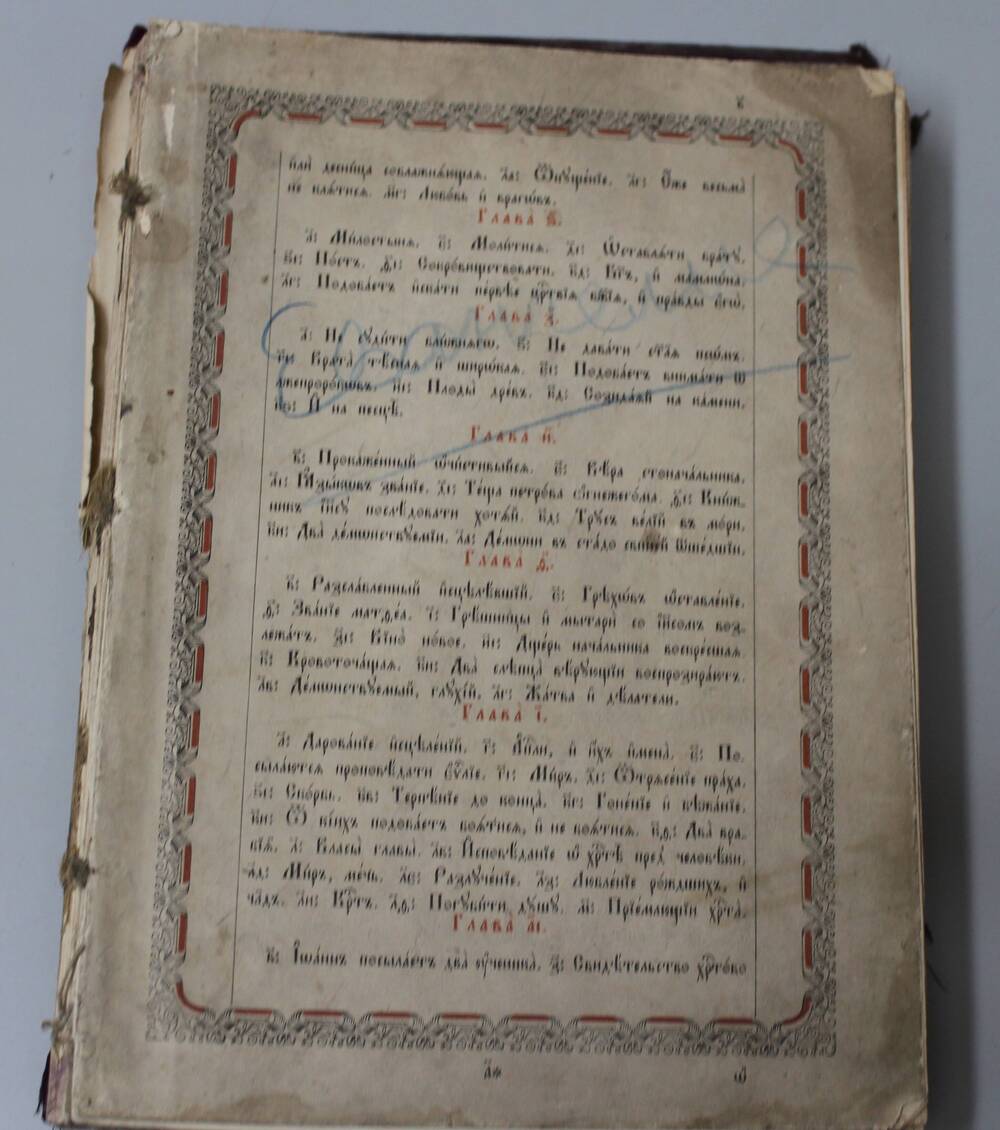 и҆лѝ десни́ца соблажнѧ́ющаѧ. л҃а: Ѿпꙋще́нїе. л҃г: Ѻ҆́же весьма̀
не клѧ́тисѧ. м҃г: Любо́вь и҆ врагѡ́въ.
Глава̀ ѕ҃.
а҃: Ми́лостынѧ. є҃: Моли́тисѧ. д҃і: Ѡ҆ставлѧ́ти бра́тꙋ.
ѕ҃і: По́стъ. ѳ҃і: Сокро́виществовати. к҃д: Бг҃ъ, и҆ мамѡ́на.
л҃г: Подоба́етъ и҆ска́ти пе́рвѣе црⷭ҇твїѧ бж҃їѧ, и҆ пра́вды є҆гѡ̀.
Глава̀ з҃.
а҃: Не сꙋди́ти бли́жнѧго. ѕ҃: Не дава́ти ст҃а̑ѧ псѡ́мъ.
г҃і: Врата̀ тѣ̑снаѧ и҆ широ́каѧ. є҃і: Подоба́етъ внима́ти ѿ
лжепроро́кѡвъ. ѕ҃і: Плоды̀ дре́въ. к҃д: Созида́ѧй на ка́мени.
к҃ѕ: И҆ на песцѣ̀.
Глава̀ и҃.
в҃: Прокаже́нный ѡ҆чи́стивыйсѧ. є҃: Вѣ́ра стонача́льника.
а҃і: Ꙗ҆зы́кѡвъ зва́нїе. д҃і: Те́ща петро́ва ѻ҆гнежего́ма. ѳ҃і: Кни́ж-
никъ і҆и҃сꙋ послѣ́довати хотѧ́й. к҃д: Трꙋ́съ ве́лїй въ мо́ри.
к҃и: Два̀ де́мѡнствꙋемїи. л҃а: Де́мѡни въ ста́до свине́й ѿше́дшїи.
Глава̀ ѳ҃.
в҃: Разсла́бленный и҆сцѣлѣ́вшїй. є҃: Грѣхѡ́въ ѡ҆ставле́нїе.
ѳ҃: Зва́нїе матѳе́а. і҃: Грѣ́шницы и҆ мытарѝ со і҆и҃сомъ воз-
лежа́тъ. з҃і: Вїно̀ но́вое. и҃і: Дще́рь нача́льника воскре́сшаѧ.
к҃: Кровоточа́щаѧ. к҃и: Два̀ слѣпца̀ вѣ́рꙋющїи воспрозира́ютъ.
л҃в: Де́мѡнствꙋемый, глꙋхі́й. л҃г: Жа́тва и҆ дѣ́латели.
Глава̀ і҃.
а҃: Дарова́нїе и҆сцѣле́нїй. г҃: А҆пⷭ҇ли, и҆ и҆́хъ и҆мена̀. є҃: По-
сыла́ютсѧ проповѣ́дати є҆ѵⷢ҇лїе. г҃і: Ми́ръ. д҃і: Ѿтрѧсе́нїе пра́ха.
ѕ҃і: Ско́рбь. к҃в: Терпѣ́нїе до конца̀. к҃г: Гоне́нїе и҆ бѣжа́нїе.
к҃и: Ѿ ки́хъ подоба́етъ боѧ́тисѧ, и҆ не боѧ́тисѧ. к҃ѳ: Два̀ вра-
бїѧ̑. л҃: Власы̀ главы̀. л҃в: И҆сповѣ́данїе ѡ҆ хрⷭ҇тѣ̀ пред̾ человѣ́ки.
л҃д: Ми́ръ, ме́чь. л҃є: Разлꙋче́нїе. л҃з: Любле́нїе ро́ждшихъ, и҆
ча̑дъ. л҃и: Крⷭ҇тъ. л҃ѳ: Погꙋби́ти дꙋ́шꙋ. м҃: Прїе́млющїи хрⷭ҇та̀.
Глава̀ а҃і.
в҃: І҆ѡа́ннъ посыла́етъ два̀ ᲂу҆ченика̑. з҃: Свидѣ́тельство хрⷭ҇то́во
а҃*
ѡ҆